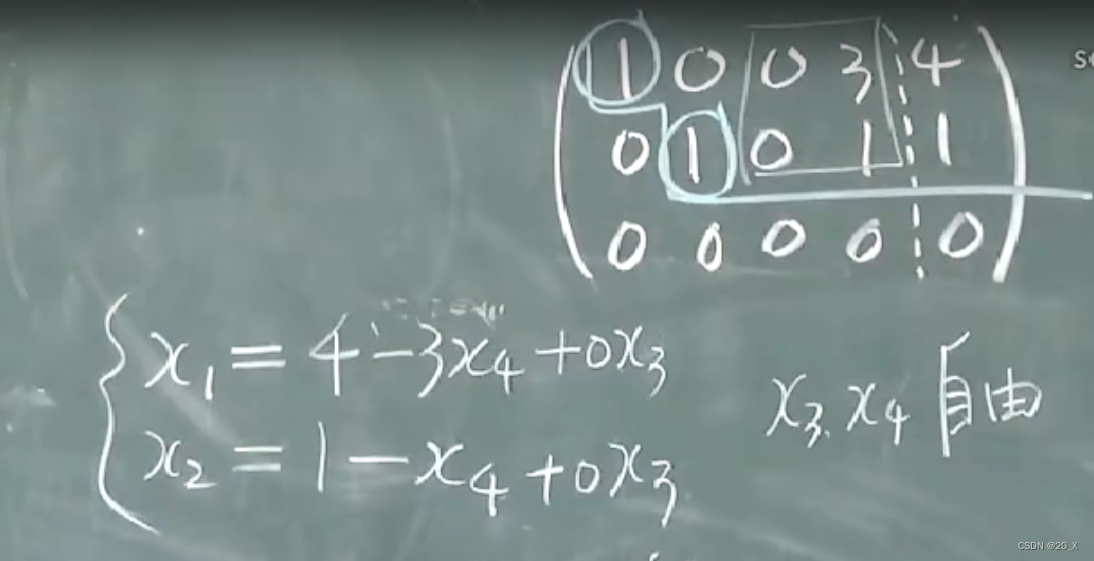 1 0 0 3 4
0 1 0 1 1
0 0 0 0 0
x₁ = 4 - 3x₄ + 0x₃
x₂ = 1 - x₄ + 0x₃
x₃, x₄ 自由
CSDN @20_X